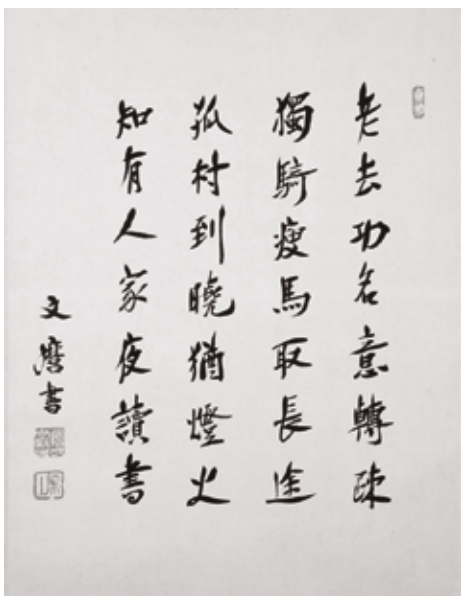 老去功名意轉疎
獨騎瘦馬取長途
孤村到曉猶燈火
知有人家夜讀書
文 書